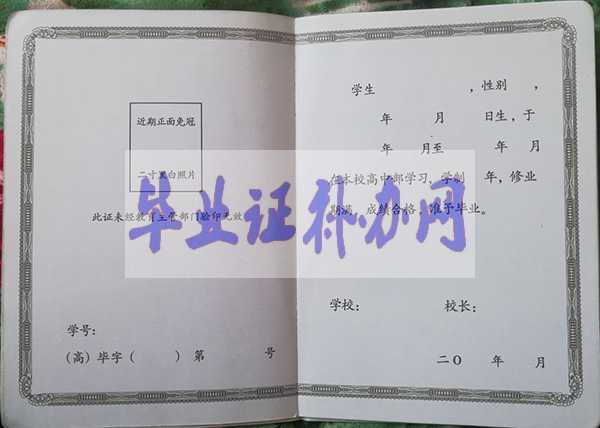 近期正面免冠
二寸黑白照片
此证未经教育主管部门验印无效
学号：
（高）毕字（ ）第 号
学生 ，性别 ，
年 月 日生，于
年 月至 年 月
在本校高中部学习，学制 年，修业
期满，成绩合格，准予毕业。
学校： 校长：
二〇 年 月
毕业证补办网